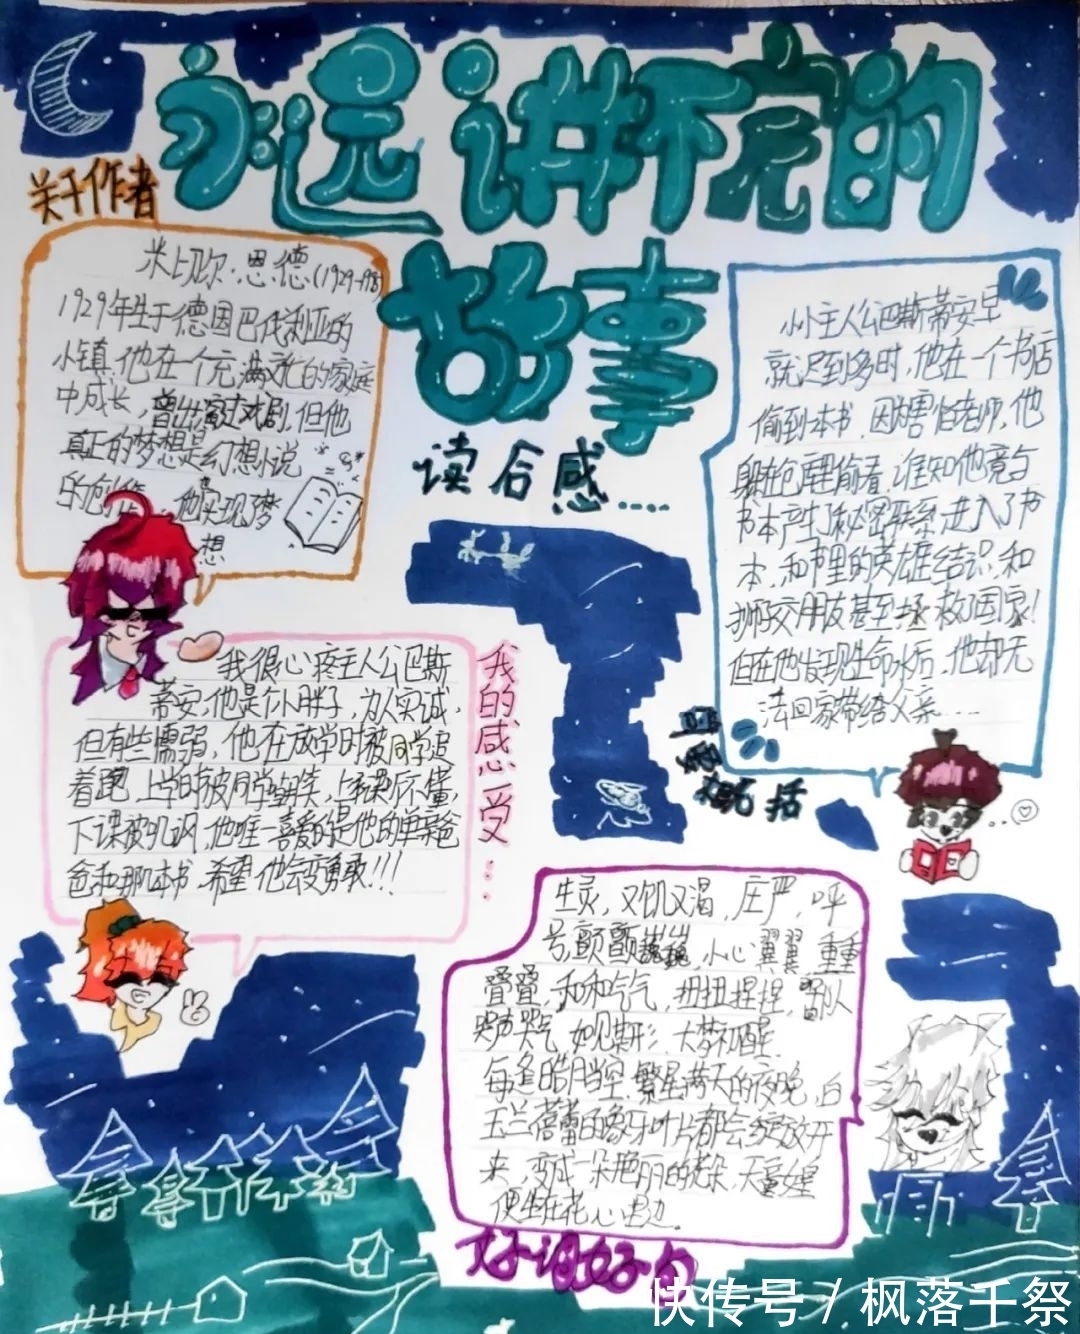 永远讲不完的
故事
读后感……
关于作者
米切尔·恩德(1929-
1929年生于德国巴伐利亚的
小镇,他在一个充满文化的家庭
中成长,曾出演过戏剧,但他
真正的梦想是幻想小说
的创作 他实现梦
想
小小主人公巴斯蒂安早
就迟到多时,他在一个书店
偷到本书,因为害怕老师,他
躲在仓库里偷看,谁知他竟与
书本产生了秘密联系,进入了书
本,和书里的英雄结识,和
狮子交朋友甚至拯救了国家!
但在他发现生命水后,他却无
法回家带给父亲……
概括
我的感受…
我很心疼主人公巴斯
蒂安,他是个小胖子,为人实诚,
但有些懦弱,他在放学时被同学追
着跑,上学时被同学嘲笑,上课听不懂,
下课被叽讽,他唯一喜爱的是他的单亲爸
爸和那几本书,希望他会变勇敢!!!
生灵,又饥又渴,庄严,呼
号,颤颤巍巍,小心翼翼,重重
叠叠,和和气气,扭扭捏捏,
哭声哭气,如见其形,大梦初醒.
每逢皓月当空,繁星满天的夜晚,白
玉兰蓓蕾的象牙叶片都会绽放开
来,变成一朵艳丽的花朵,天童女皇
便坐在花心里边.
好词好句
快传号 / 枫落千祭